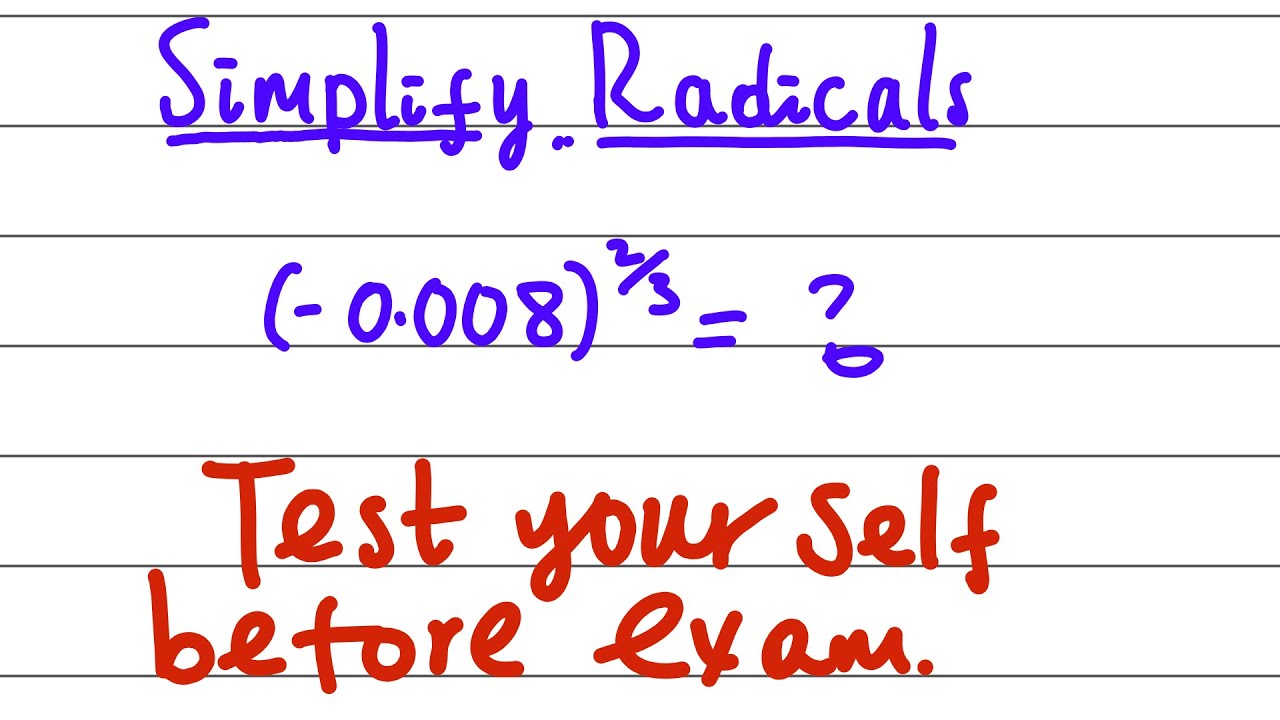 Simplify Radicals
(-0.008)^2/3 = ?
Test your self
before exam.